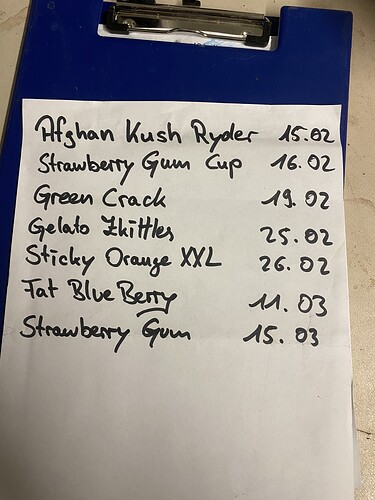 Afghan Kush Ryder 15.02
Strawberry Gum Cup 16.02
Green Crack 19.02
Gelato Zkittles 25.02
Sticky Orange XXL 26.02
Fat Blue Berry 11.03
Strawberry Gum 15.03